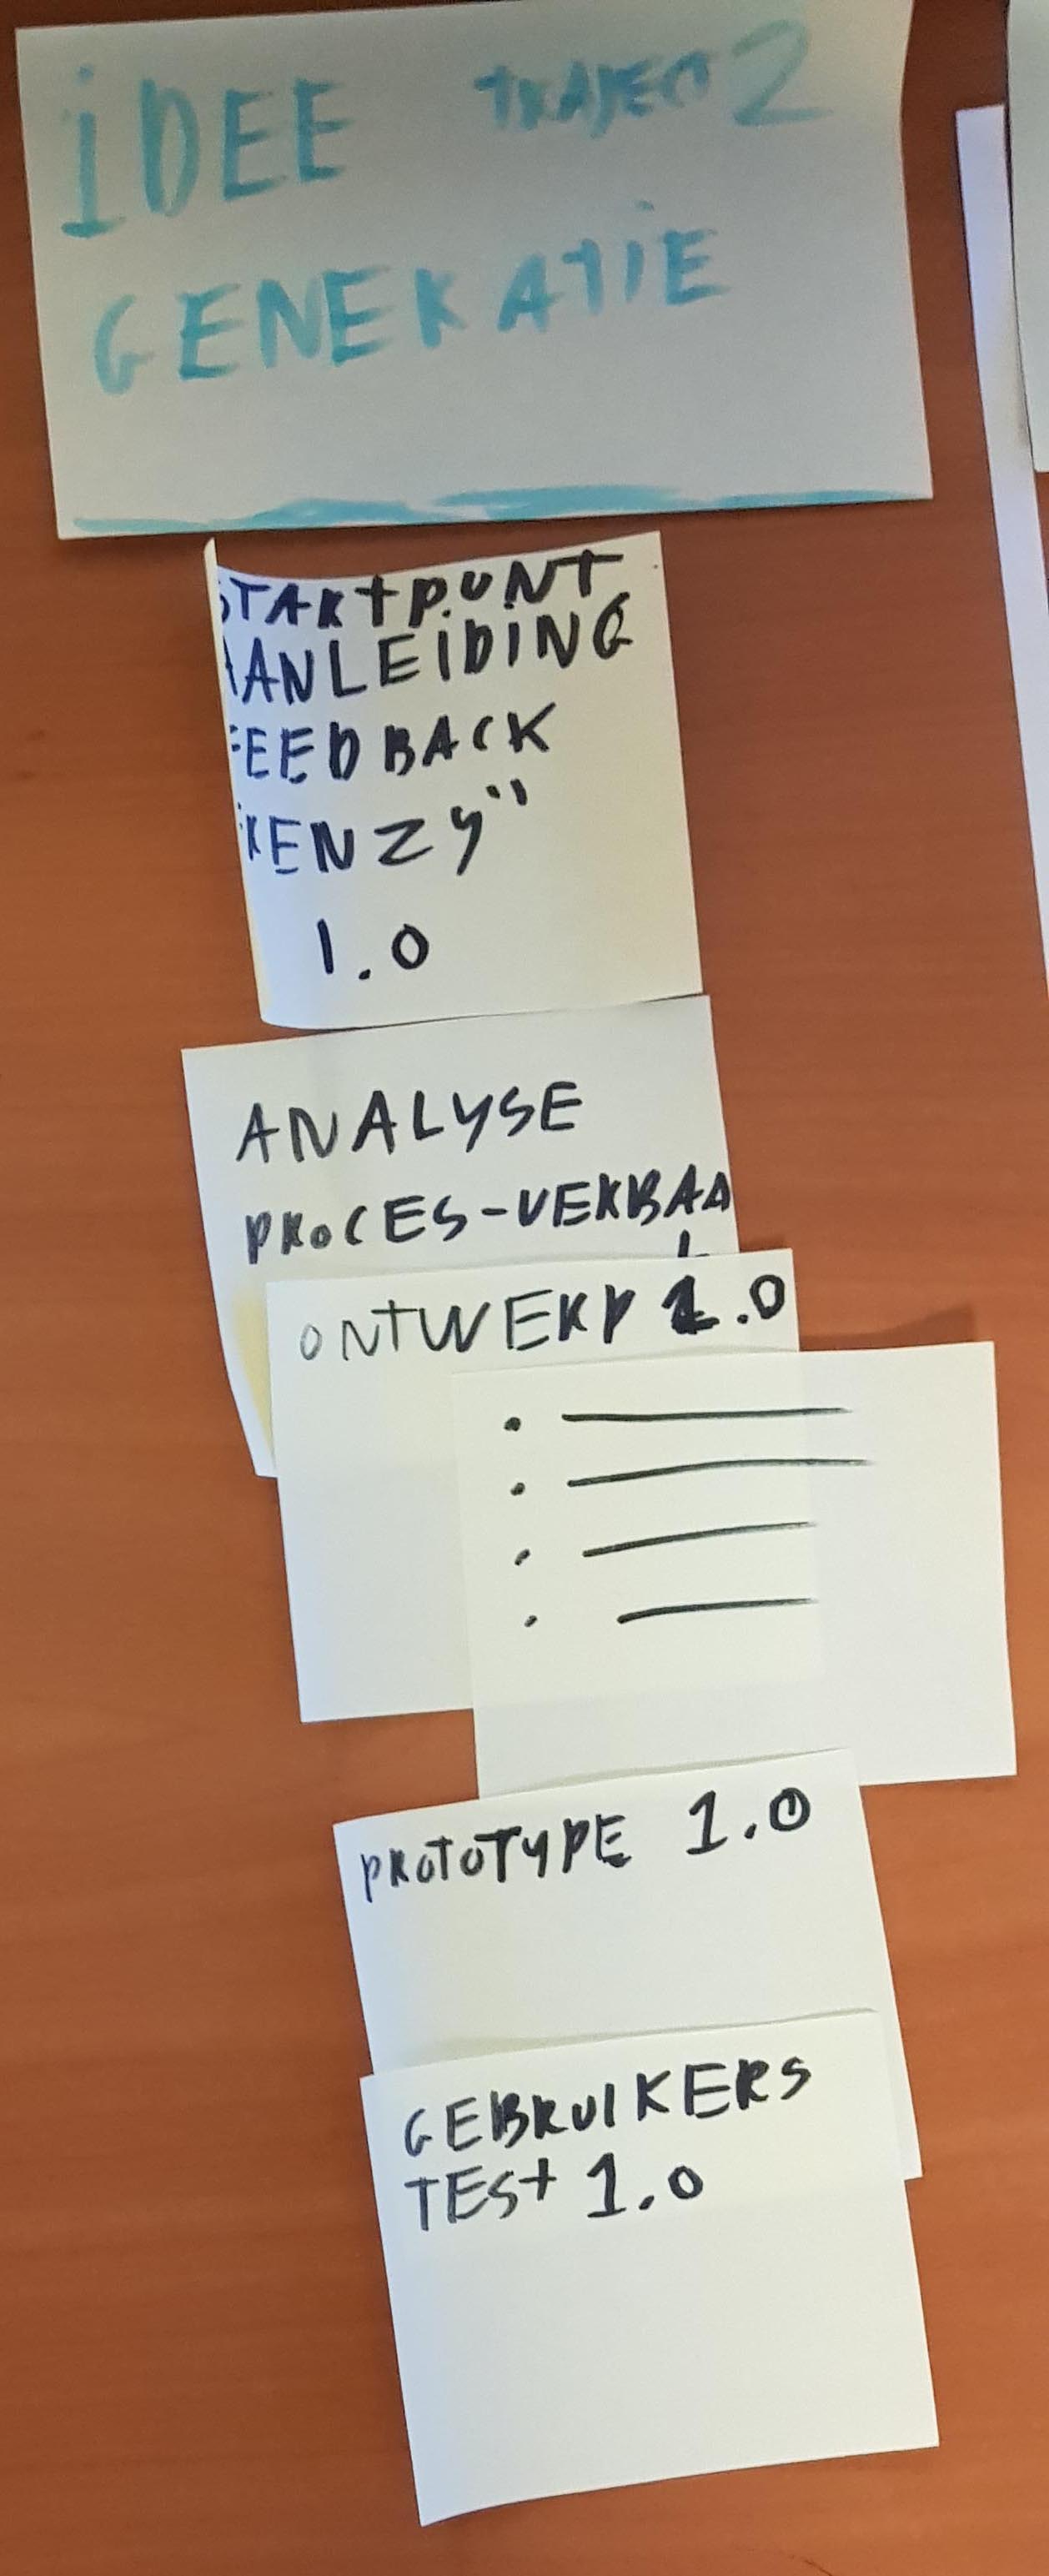 IDEE TRAJECT 2
GENERATIE
STARTPUNT
AANLEIDING
FEEDBACK
"KENZY"
1.0
ANALYSE
PROCES-VERBAA
L
ONTWERP 1.0
PROTOTYPE 1.0
GEBRUIKERS
TEST 1.0